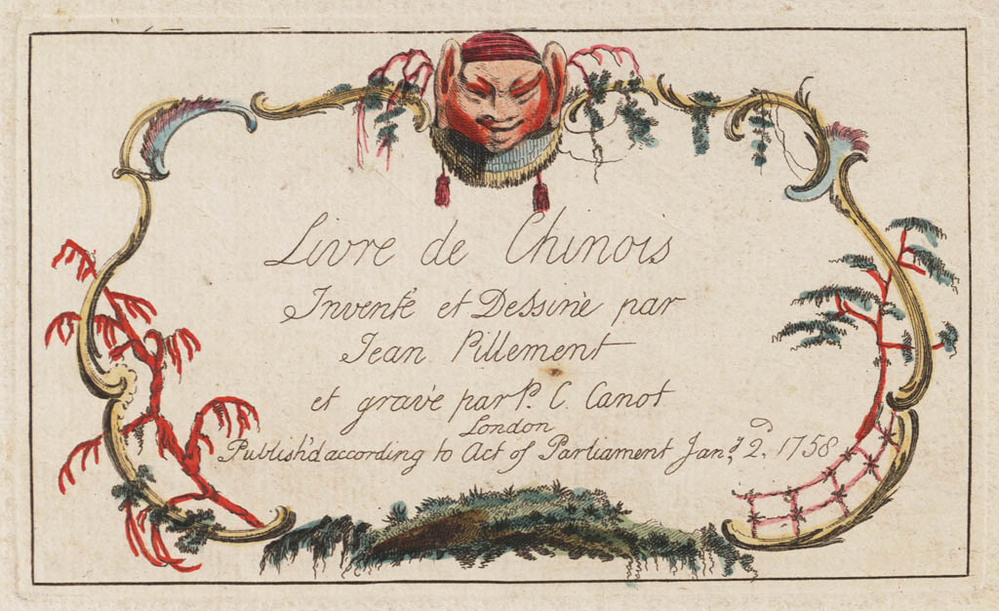 Livre de Chinois
Inventé et Dessiné par
Jean Pillement
et gravé par P. C. Canot
London
Publish'd according to Act of Parliament Jan.y 2.d 1758